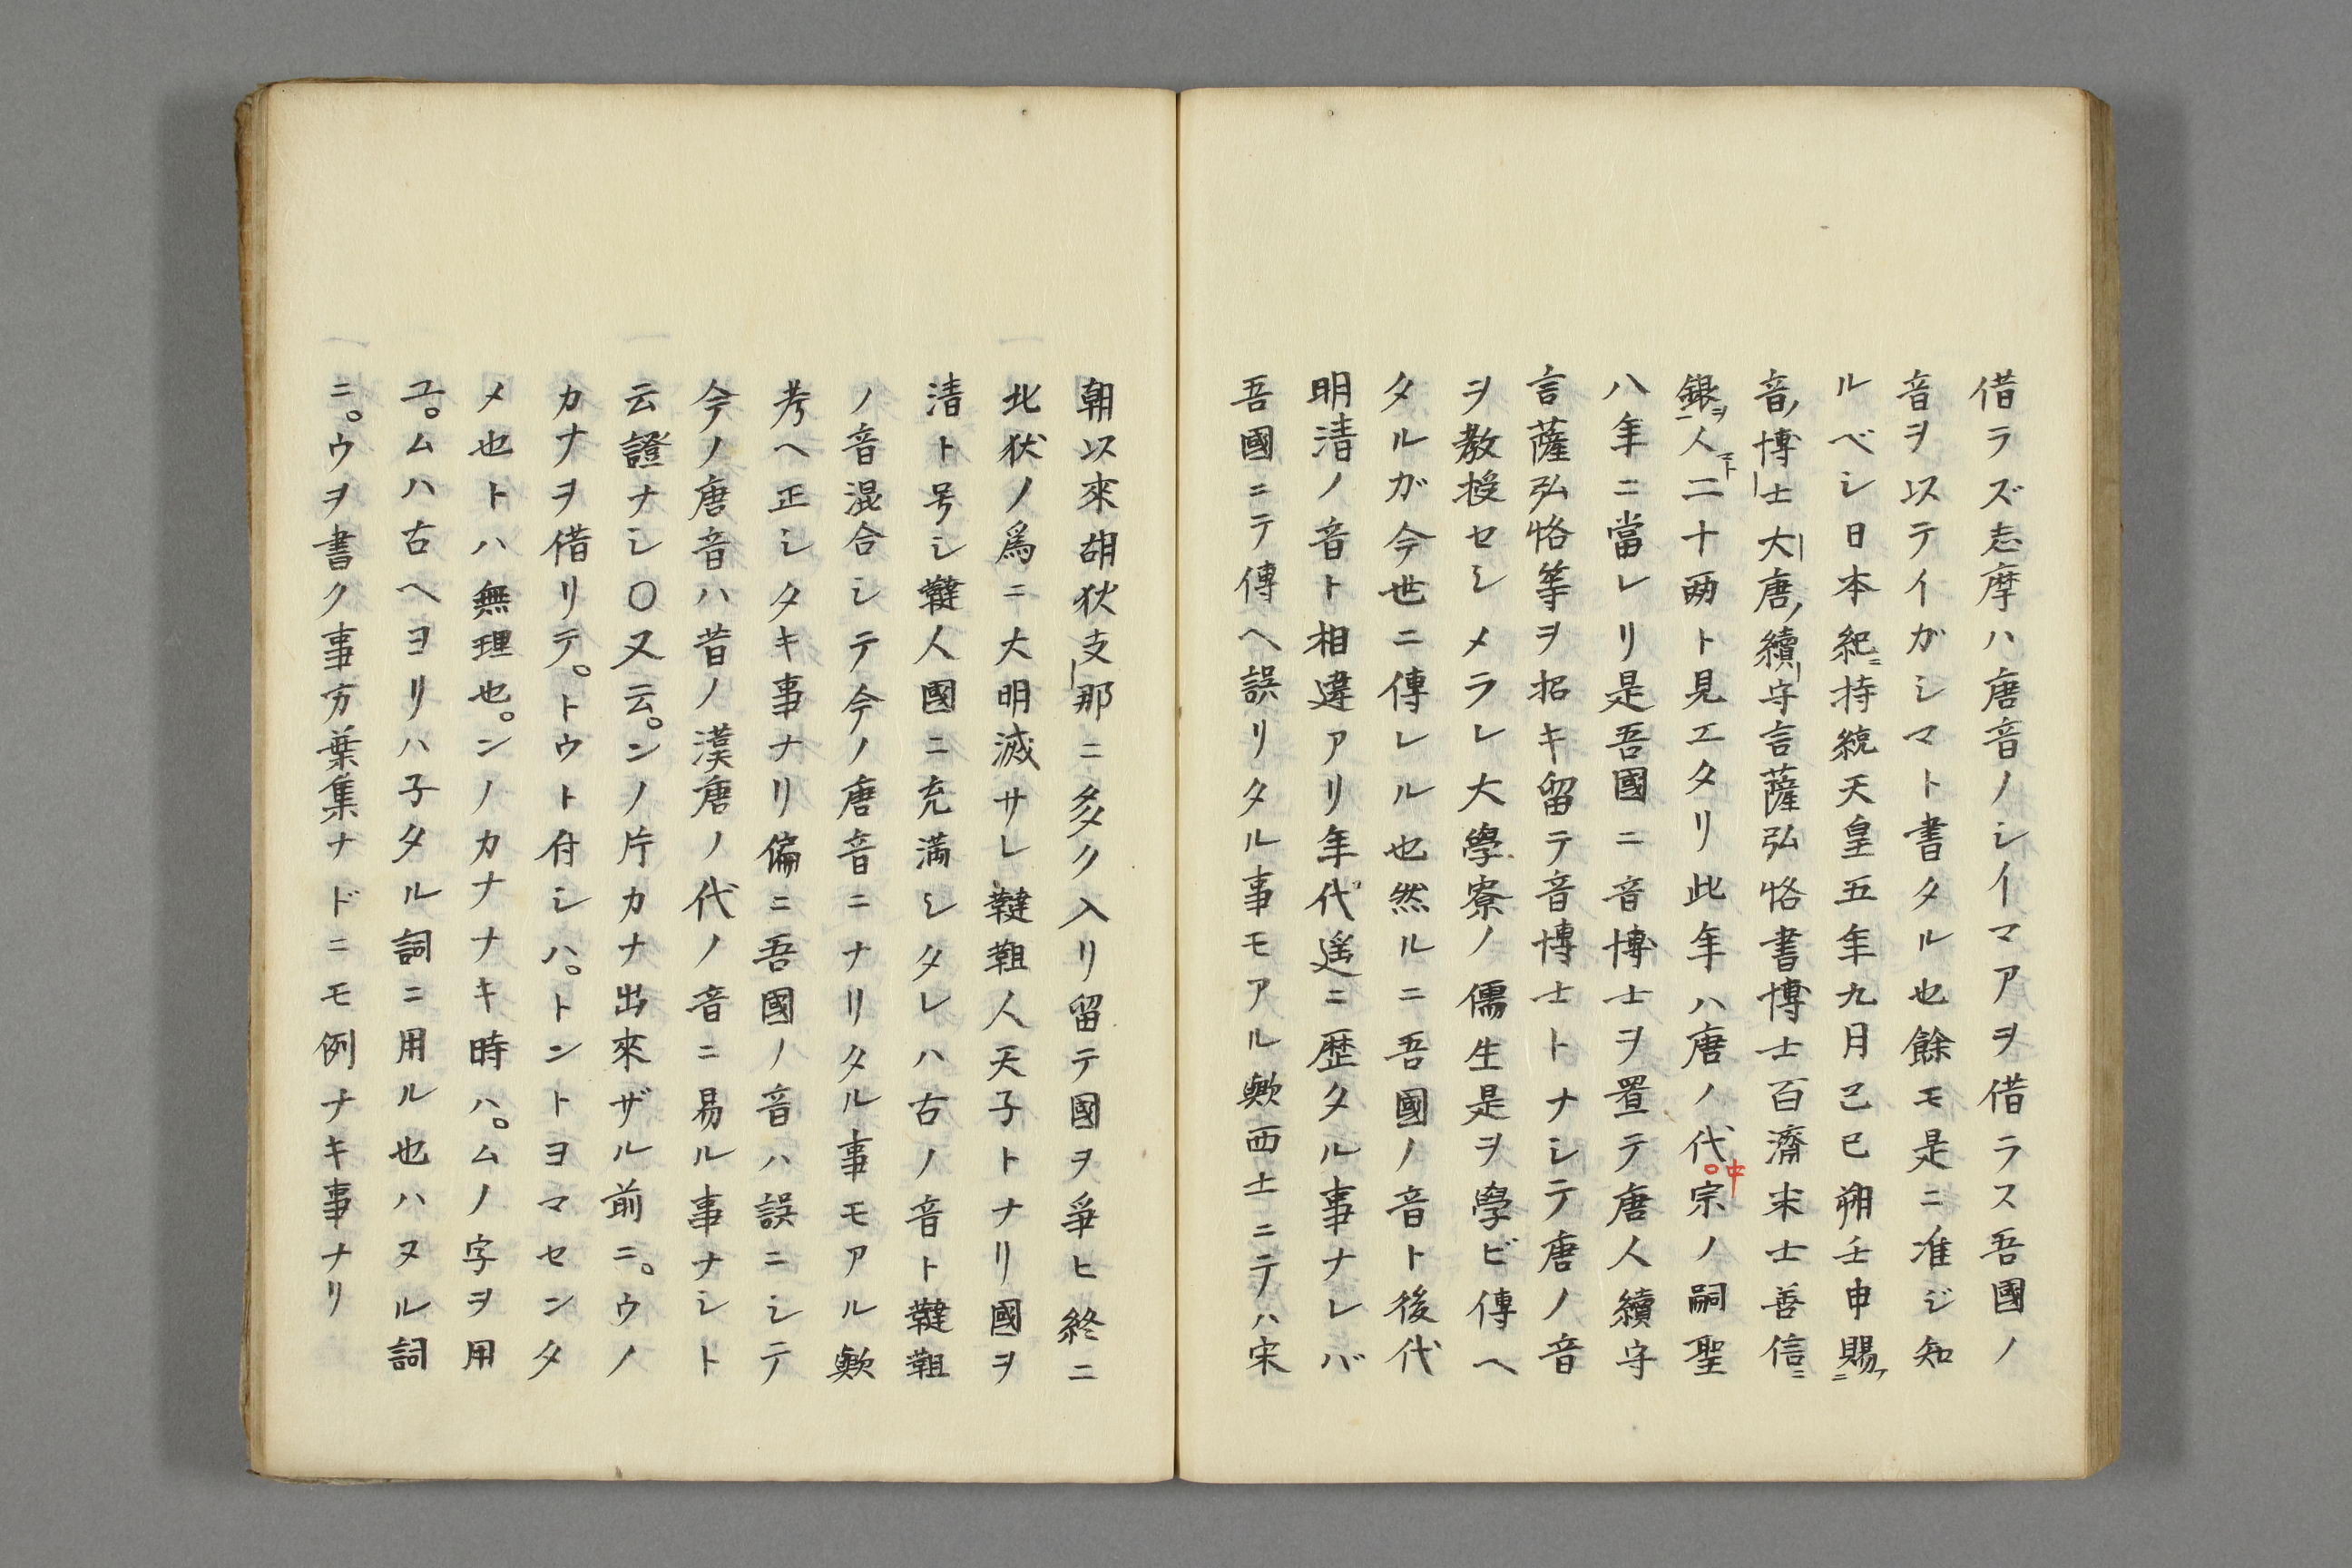 借ラズ志摩ハ唐音ノシイマアヲ借ラス吾國ノ
音ヲ以テイガシマト書タル也餘モ是ニ准ジ知
ルベシ日本紀ニ持統天皇五年九月己巳朔壬申賜フニ
音ノ博士大唐ノ續守言薩弘恪書博士百濟末士善信ニ
銀ヲ人コト二十両ト見エタリ此年ハ唐ノ代中宗ノ嗣聖
八年ニ當レリ是吾國ニ音博士ヲ置テ唐人續守
言薩弘恪等ヲ招キ留テ音博士トナシテ唐ノ音
ヲ教授セシメラレ大學寮ノ儒生是ヲ學ビ傳ヘ
タルガ今世ニ傳レル也然ルニ吾國ノ音ト後代
明清ノ音ト相違アリ年代遙ニ歴タル事ナレバ
吾國ニテ傳ヘ誤リタル事モアル歟西土ニテハ宋
朝以來胡狄支那ニ多ク入リ留テ國ヲ爭ヒ終ニ
北狄ノ爲ニ大明滅サレ韃靼人天子トナリ國ヲ
清ト号シ韃人國ニ充満シタレハ古ノ音ト韃靼
ノ音混合シテ今ノ唐音ニナリタル事モアル歟
考ヘ正シタキ事ナリ偏ニ吾國ノ音ハ誤ニシテ
今ノ唐音ハ昔ノ漢唐ノ代ノ音ニ易ル事ナシト
云證ナシ〇又云。ンノ片カナ出來ザル前ニ。ウノ
カナヲ借リテ。トウト付シハ。トントヨマセンタ
メ也トハ無理也。ンノカナナキ時ハ。ムノ字ヲ用
ユ。ムハ古ヘヨリハ子タル詞ニ用ル也ハヌル詞
ニ。ウヲ書ク事万葉集ナドニモ例ナキ事ナリ